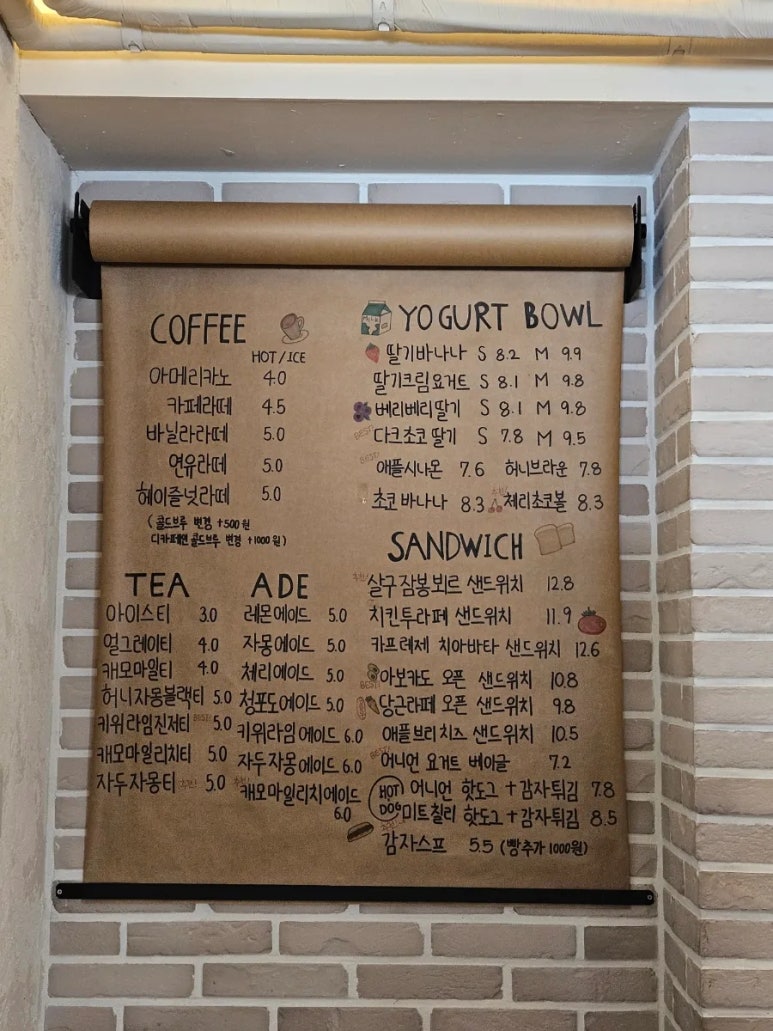 COFFEE
HOT/ICE
아메리카노 4.0
카페라떼 4.5
바닐라라떼 5.0
연유라떼 5.0
헤이즐넛라떼 5.0
(콜드브루 변경 +500원
디카페인 콜드브루 변경 +1000원)
TEA
아이스티 3.0
얼그레이티 4.0
캐모마일티 4.0
허니자몽블랙티 5.0
키위라임진저티 BEST! 5.0
캐모마일리치티 5.0
자두자몽티 추천! 5.0
ADE
레몬에이드 5.0
자몽에이드 5.0
체리에이드 5.0
청포도에이드 5.0
키위라임에이드 6.0
자두자몽에이드 6.0
추천! 캐모마일리치에이드
6.0
MILK
YOGURT BOWL
딸기바나나 S 8.2 M 9.9
딸기크림요거트 S 8.1 M 9.8
베리베리딸기 S 8.1 M 9.8
BEST! 다크초코딸기 S 7.8 M 9.5
BEST! 애플시나몬 7.6 허니브라운 7.8
초코바나나 8.3 추천! 체리초코볼 8.3
SANDWICH
추천! 살구잠봉뵈르 샌드위치 12.8
치킨투라페 샌드위치 11.9
카프레제 치아바타 샌드위치 12.6
BEST! 아보카도 오픈 샌드위치 10.8
당근라페 오픈 샌드위치 9.8
애플브리치즈 샌드위치 10.5
BEST! 어니언 요거트 베이글 7.2
HOT DOG
어니언 핫도그+감자튀김 7.8
미트칠리 핫도그+감자튀김 8.5
감자스프 5.5 (빵추가 1000원)